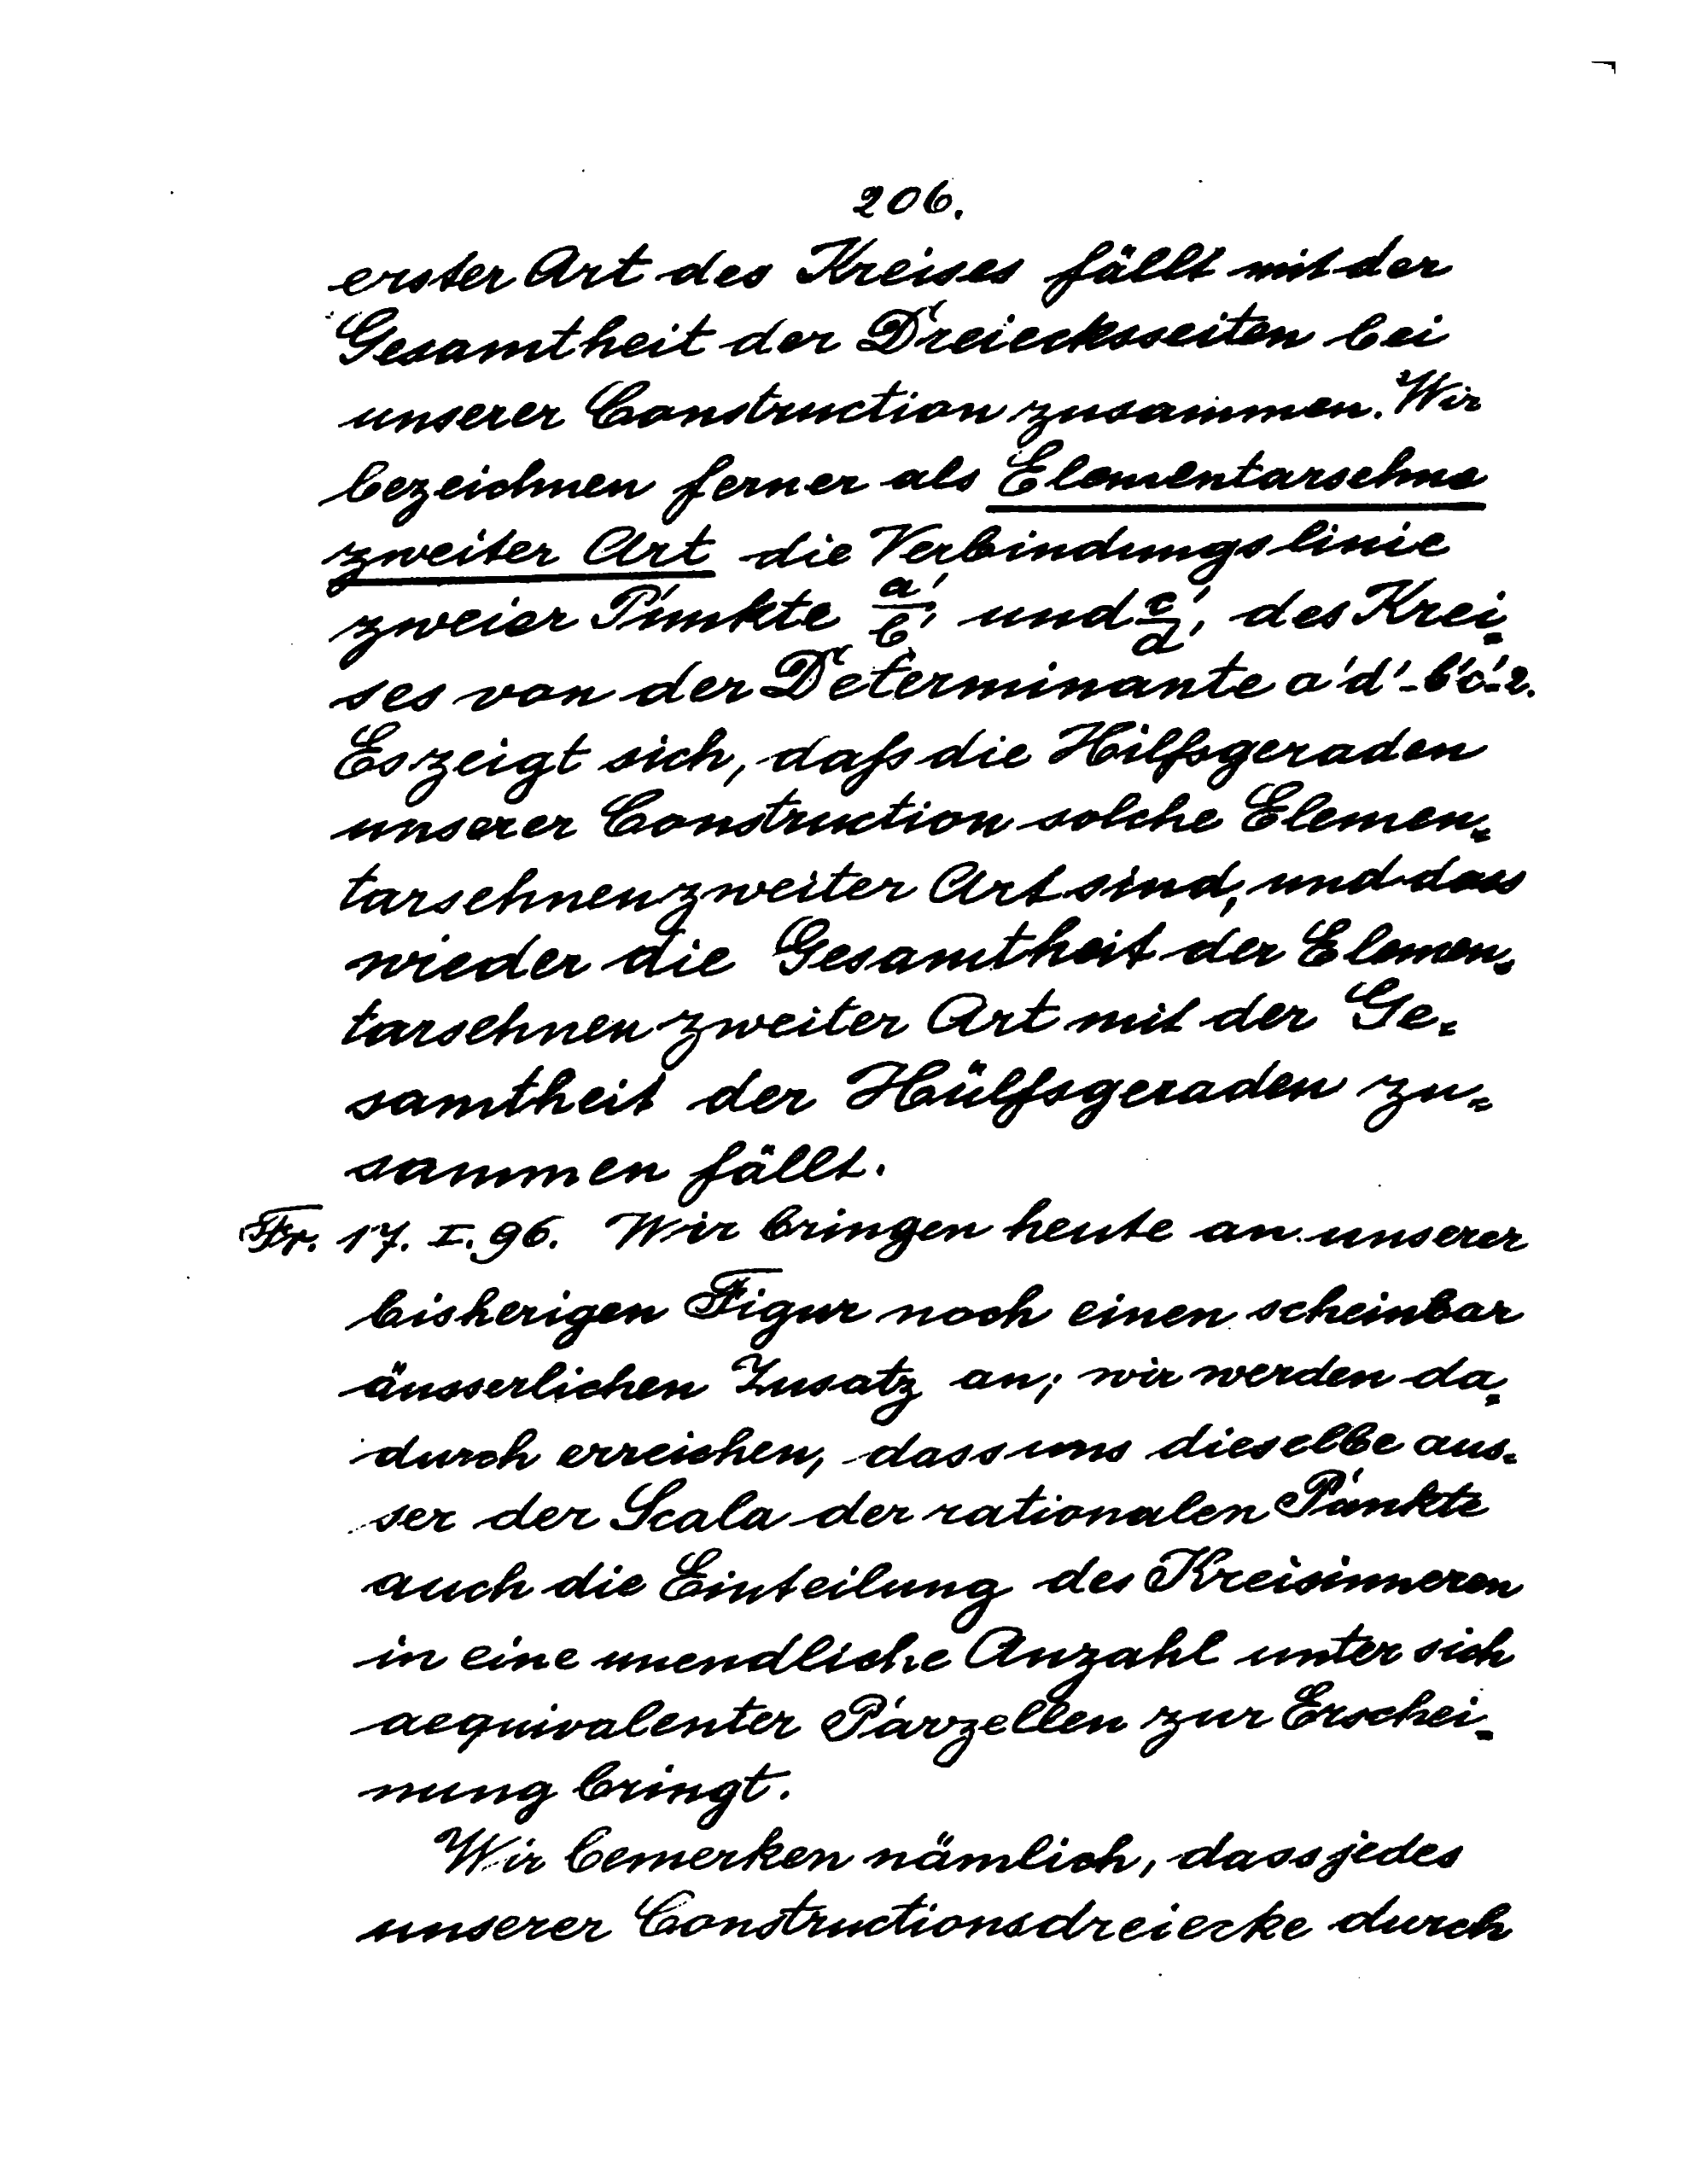 206.
erster Art des Kreises fällt mit der
Gesamtheit der Dreiecksseiten bei
unserer Construction zusammen. Wir
bezeichnen ferner als Elementarsehne
zweiter Art die Verbindungslinie
zweier Punkte a'/b' und c'/d' des Krei-
ses von der Determinante a'd'-b'c'=2.
Es zeigt sich, daſs die Hilfsgeraden
unserer Construction solche Elemen=
tarsehnen zweiter Art sind, und dass
wieder die Gesamtheit der Elemen=
tarsehnen zweiter Art mit der Ge=
samtheit der Hülfsgeraden zu=
sammen fällt.
Fr. 17. I. 96. Wir bringen heute an unserer
bisherigen Figur noch einen scheinbar
äusserlichen Zusatz an; wir werden da=
durch erreichen, dass uns dieselbe aus=
ser der Scala der rationalen Punkte
auch die Einteilung des Kreisinneren
in eine unendliche Anzahl unter sich
aequivalenter Parzellen zur Erschei=
nung bringt.
Wir bemerken nämlich, dass jedes
unserer Constructionsdreiecke durch